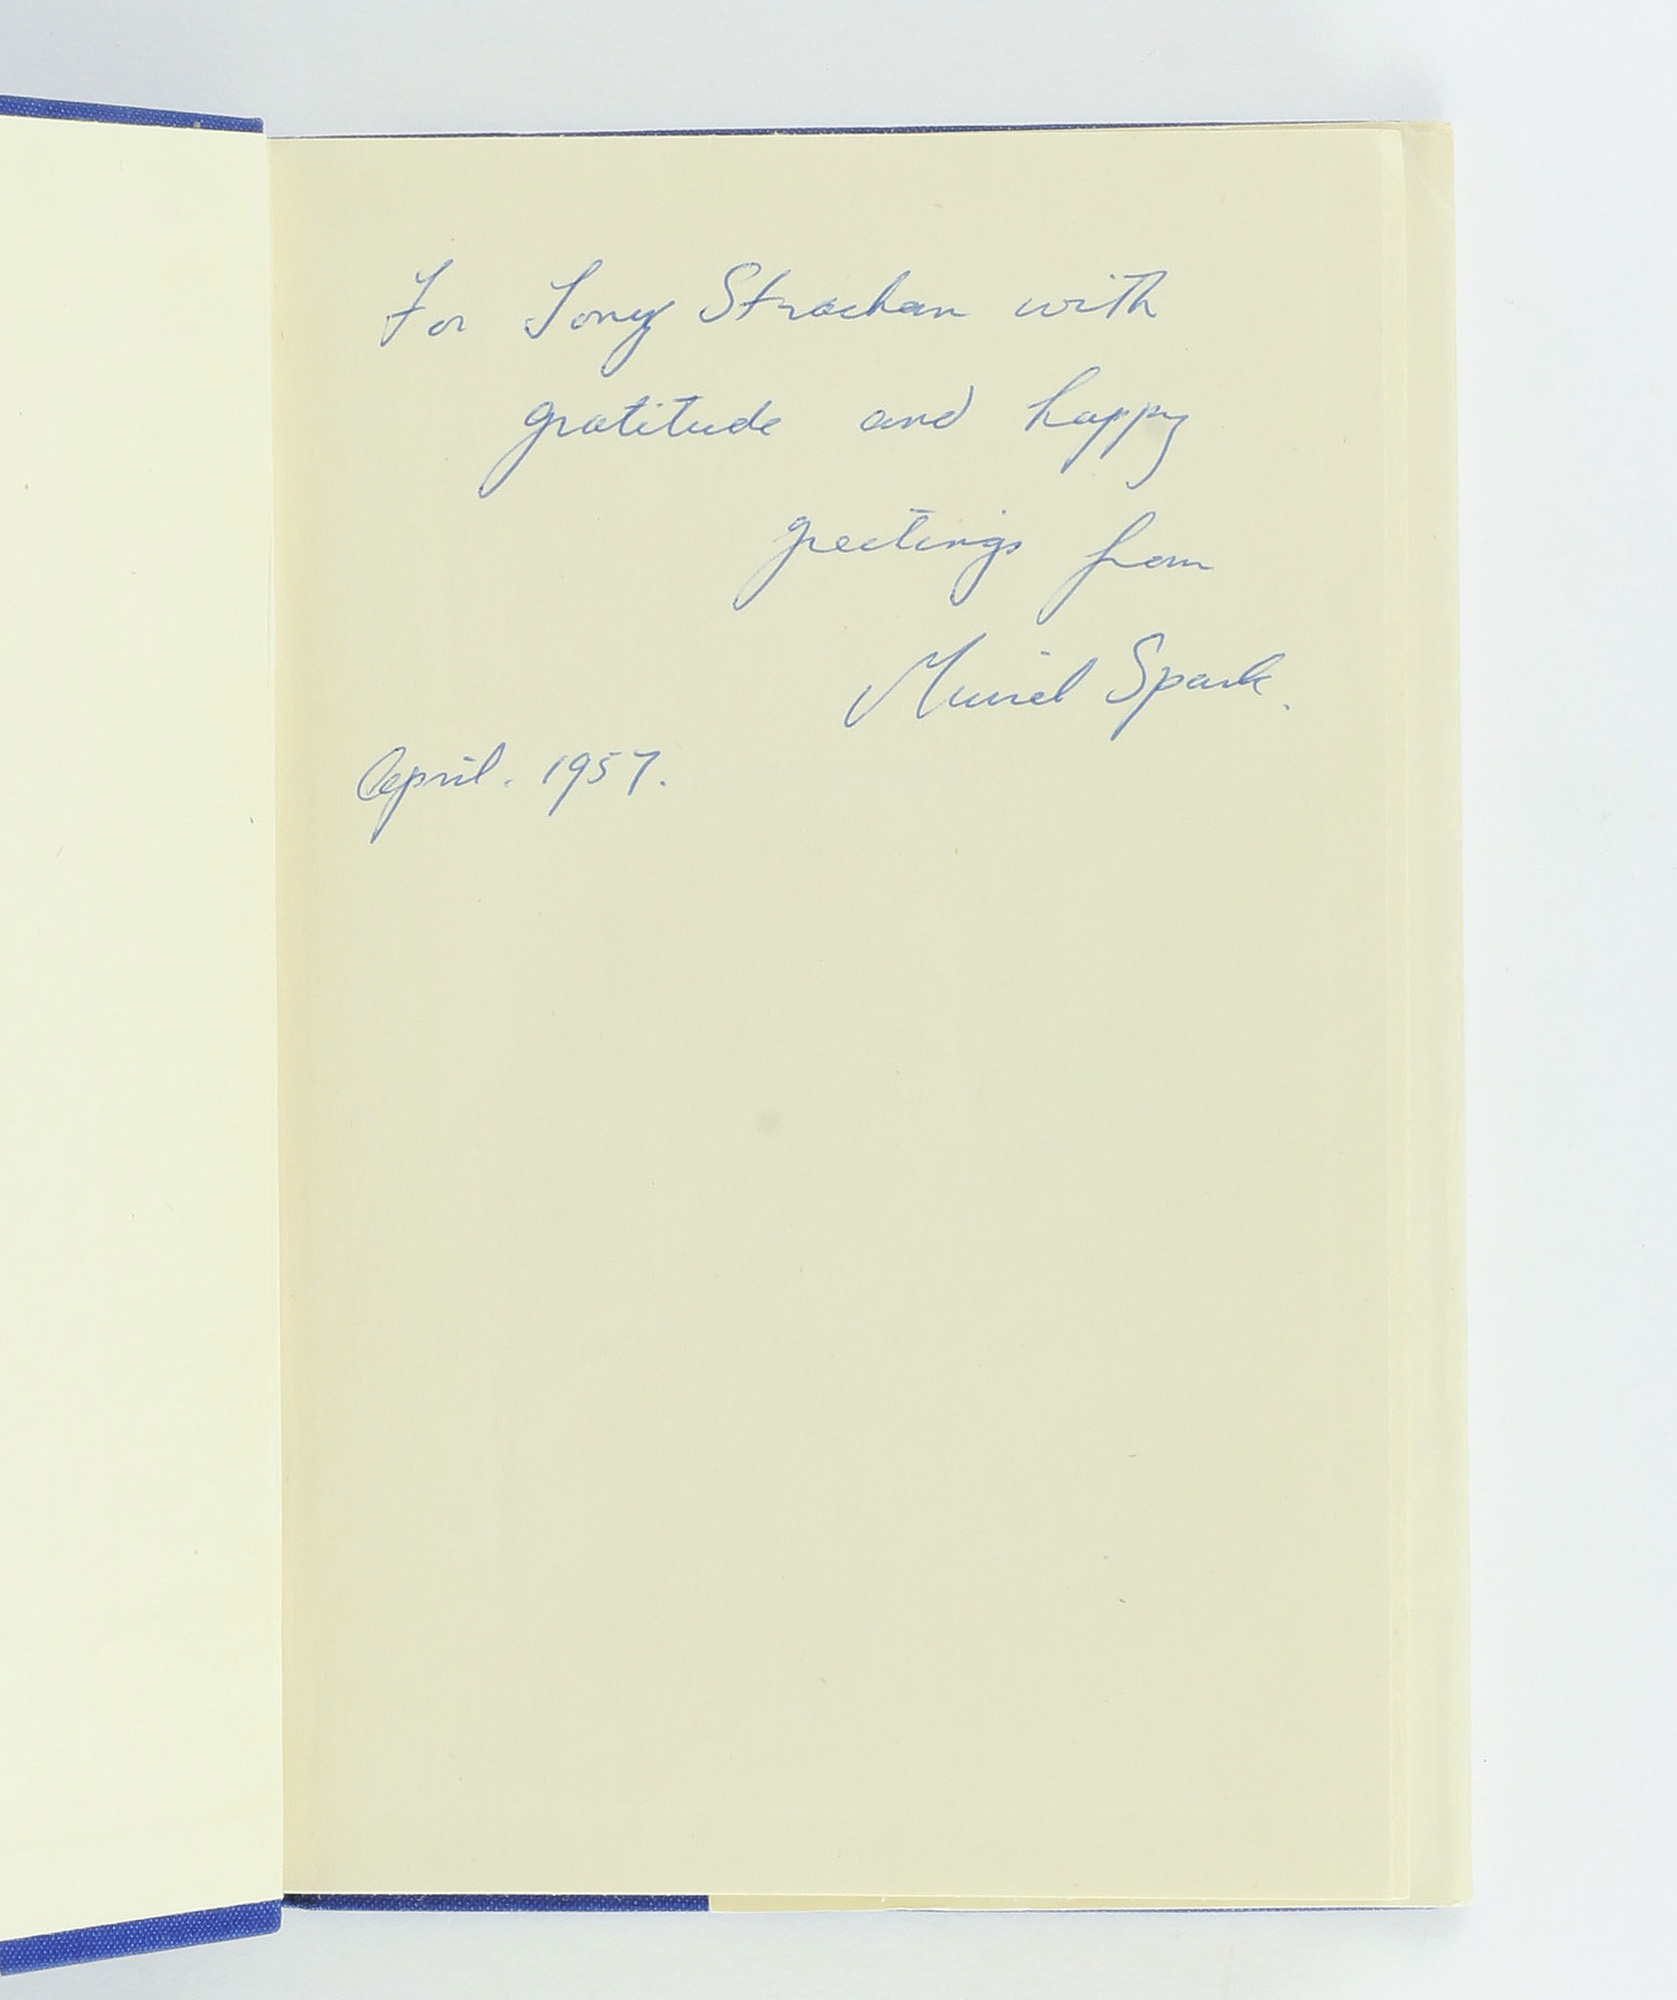 For Tony Strachan with
gratitude and happy
greetings from
Muriel Spark.
April. 1957.